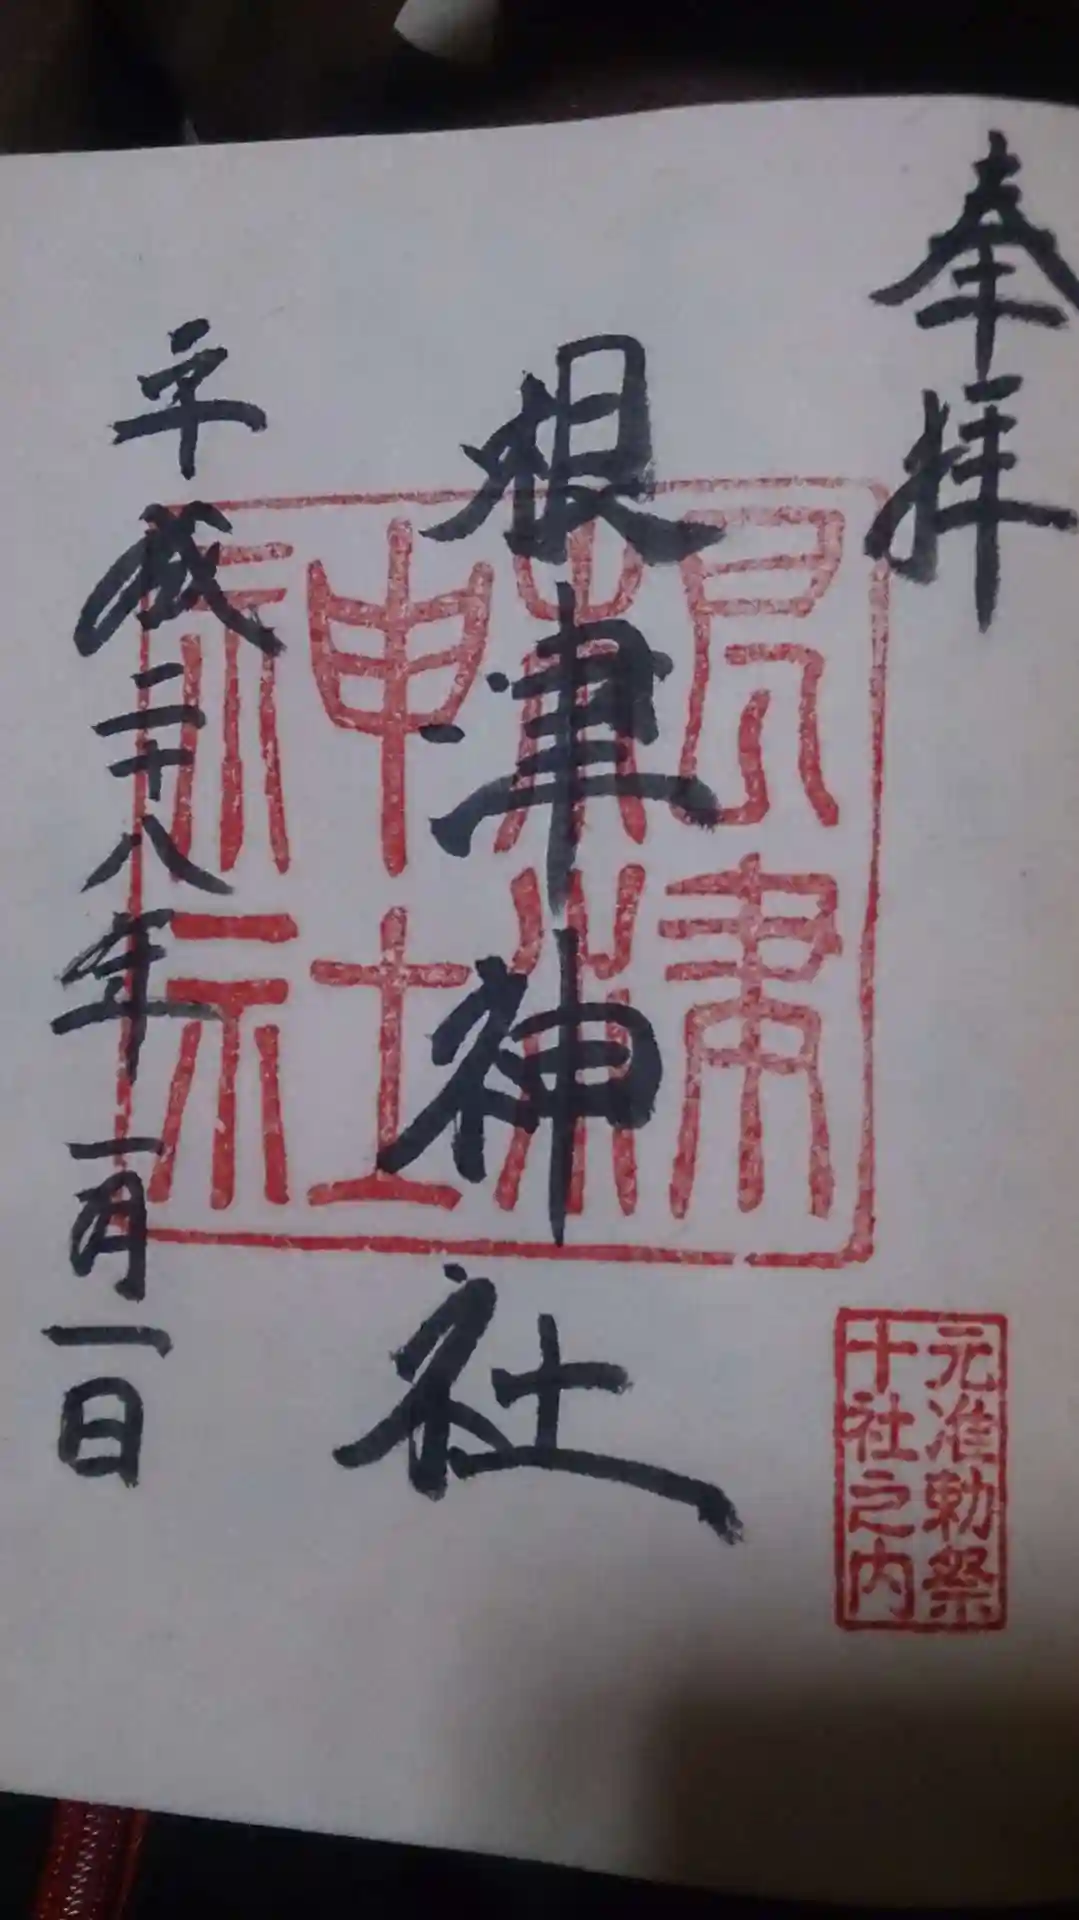 奉拝
根津神社
根津神社
平成二十八年一月一日
元准勅祭
十社之内